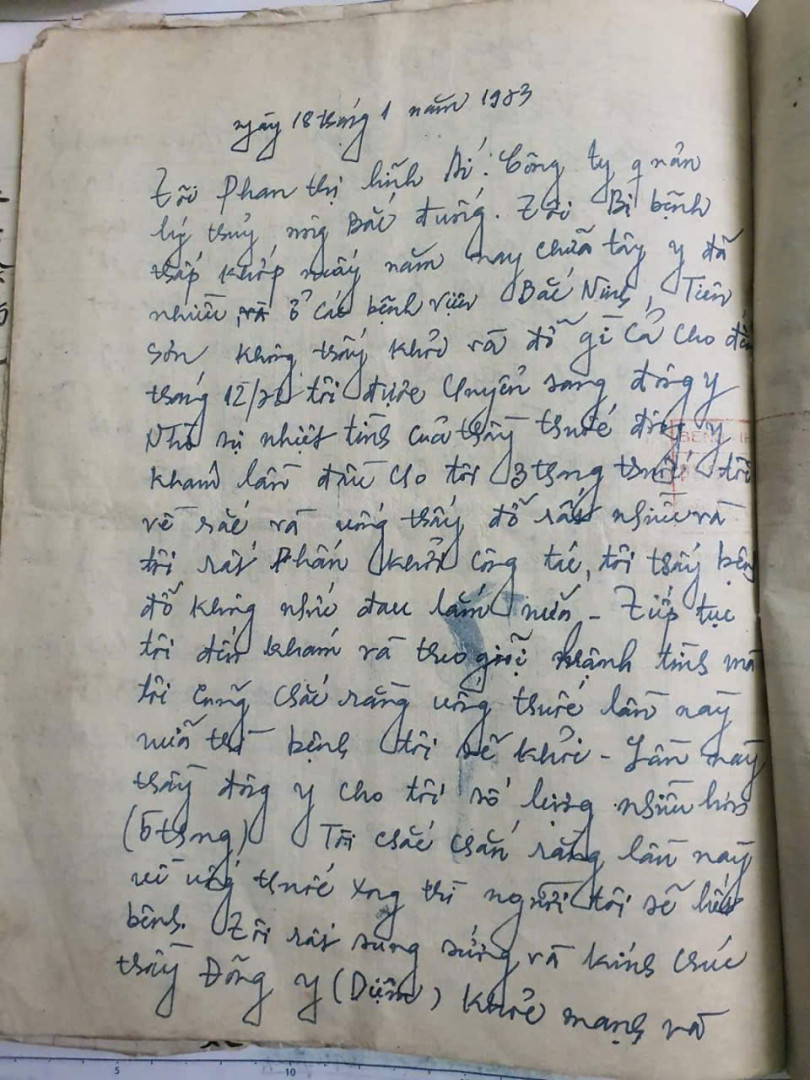 ngày 18 tháng 1 năm 1983
Tôi Phan thị Công ty quản
lý thuỷ nông Bắc đuống. Tôi Bị bệnh
thấp khớp mấy năm nay chữa tây y đã
nhiều và ở các bệnh viện Bắc Ninh, Tiên
Sơn không thấy khỏi và đỡ gì cả cho đến
tháng 12/82 tôi được chuyển sang đông y
Nhờ sự nhiệt tình của thầy thuốc đông y
khám lần đầu cho tôi 3 thang thuốc tôi
về sắc và uống thấy đỡ rất nhiều và
tôi rất Phấn khởi công tác, tôi thấy bệnh
đỡ không nhức đau lắm nữa - Tiếp tục
tôi đến khám và theo giõi mà
tôi cũng chắc rằng uống thuốc lần này
nữa thì bệnh tôi sẽ khỏi - Lần này
thầy đông y cho tôi số lượng nhiều hơn
(5 thang) Tôi chắc chắn rằng lần này
về uống thuốc xong thì người tôi sẽ hết
bệnh. Tôi rất sung sướng và kính chúc
thầy Đông y (Diệm) khoẻ mạnh và